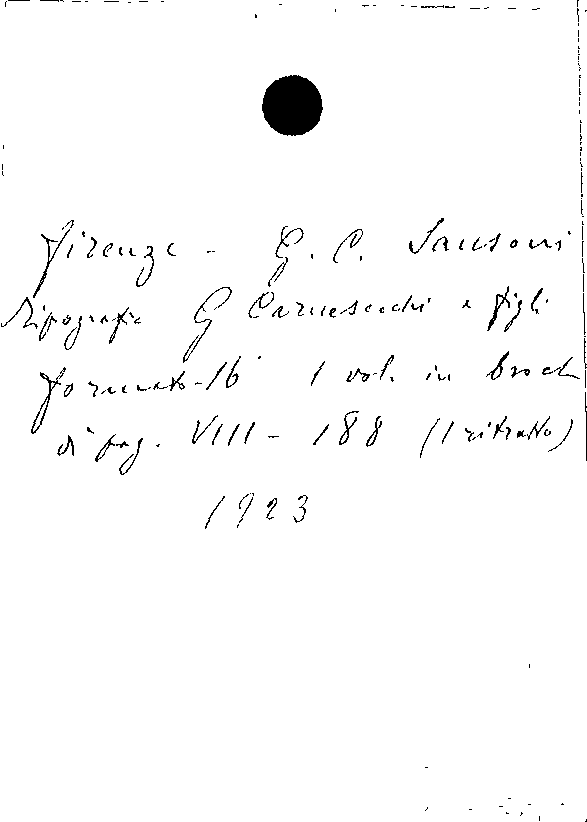 Firenze - G. C. Sansoni
Tipografia G Carnesecchi e figli
formato-16° 1 vol. in broch
di pag. VIII - 188 (1 ritratto)
1923